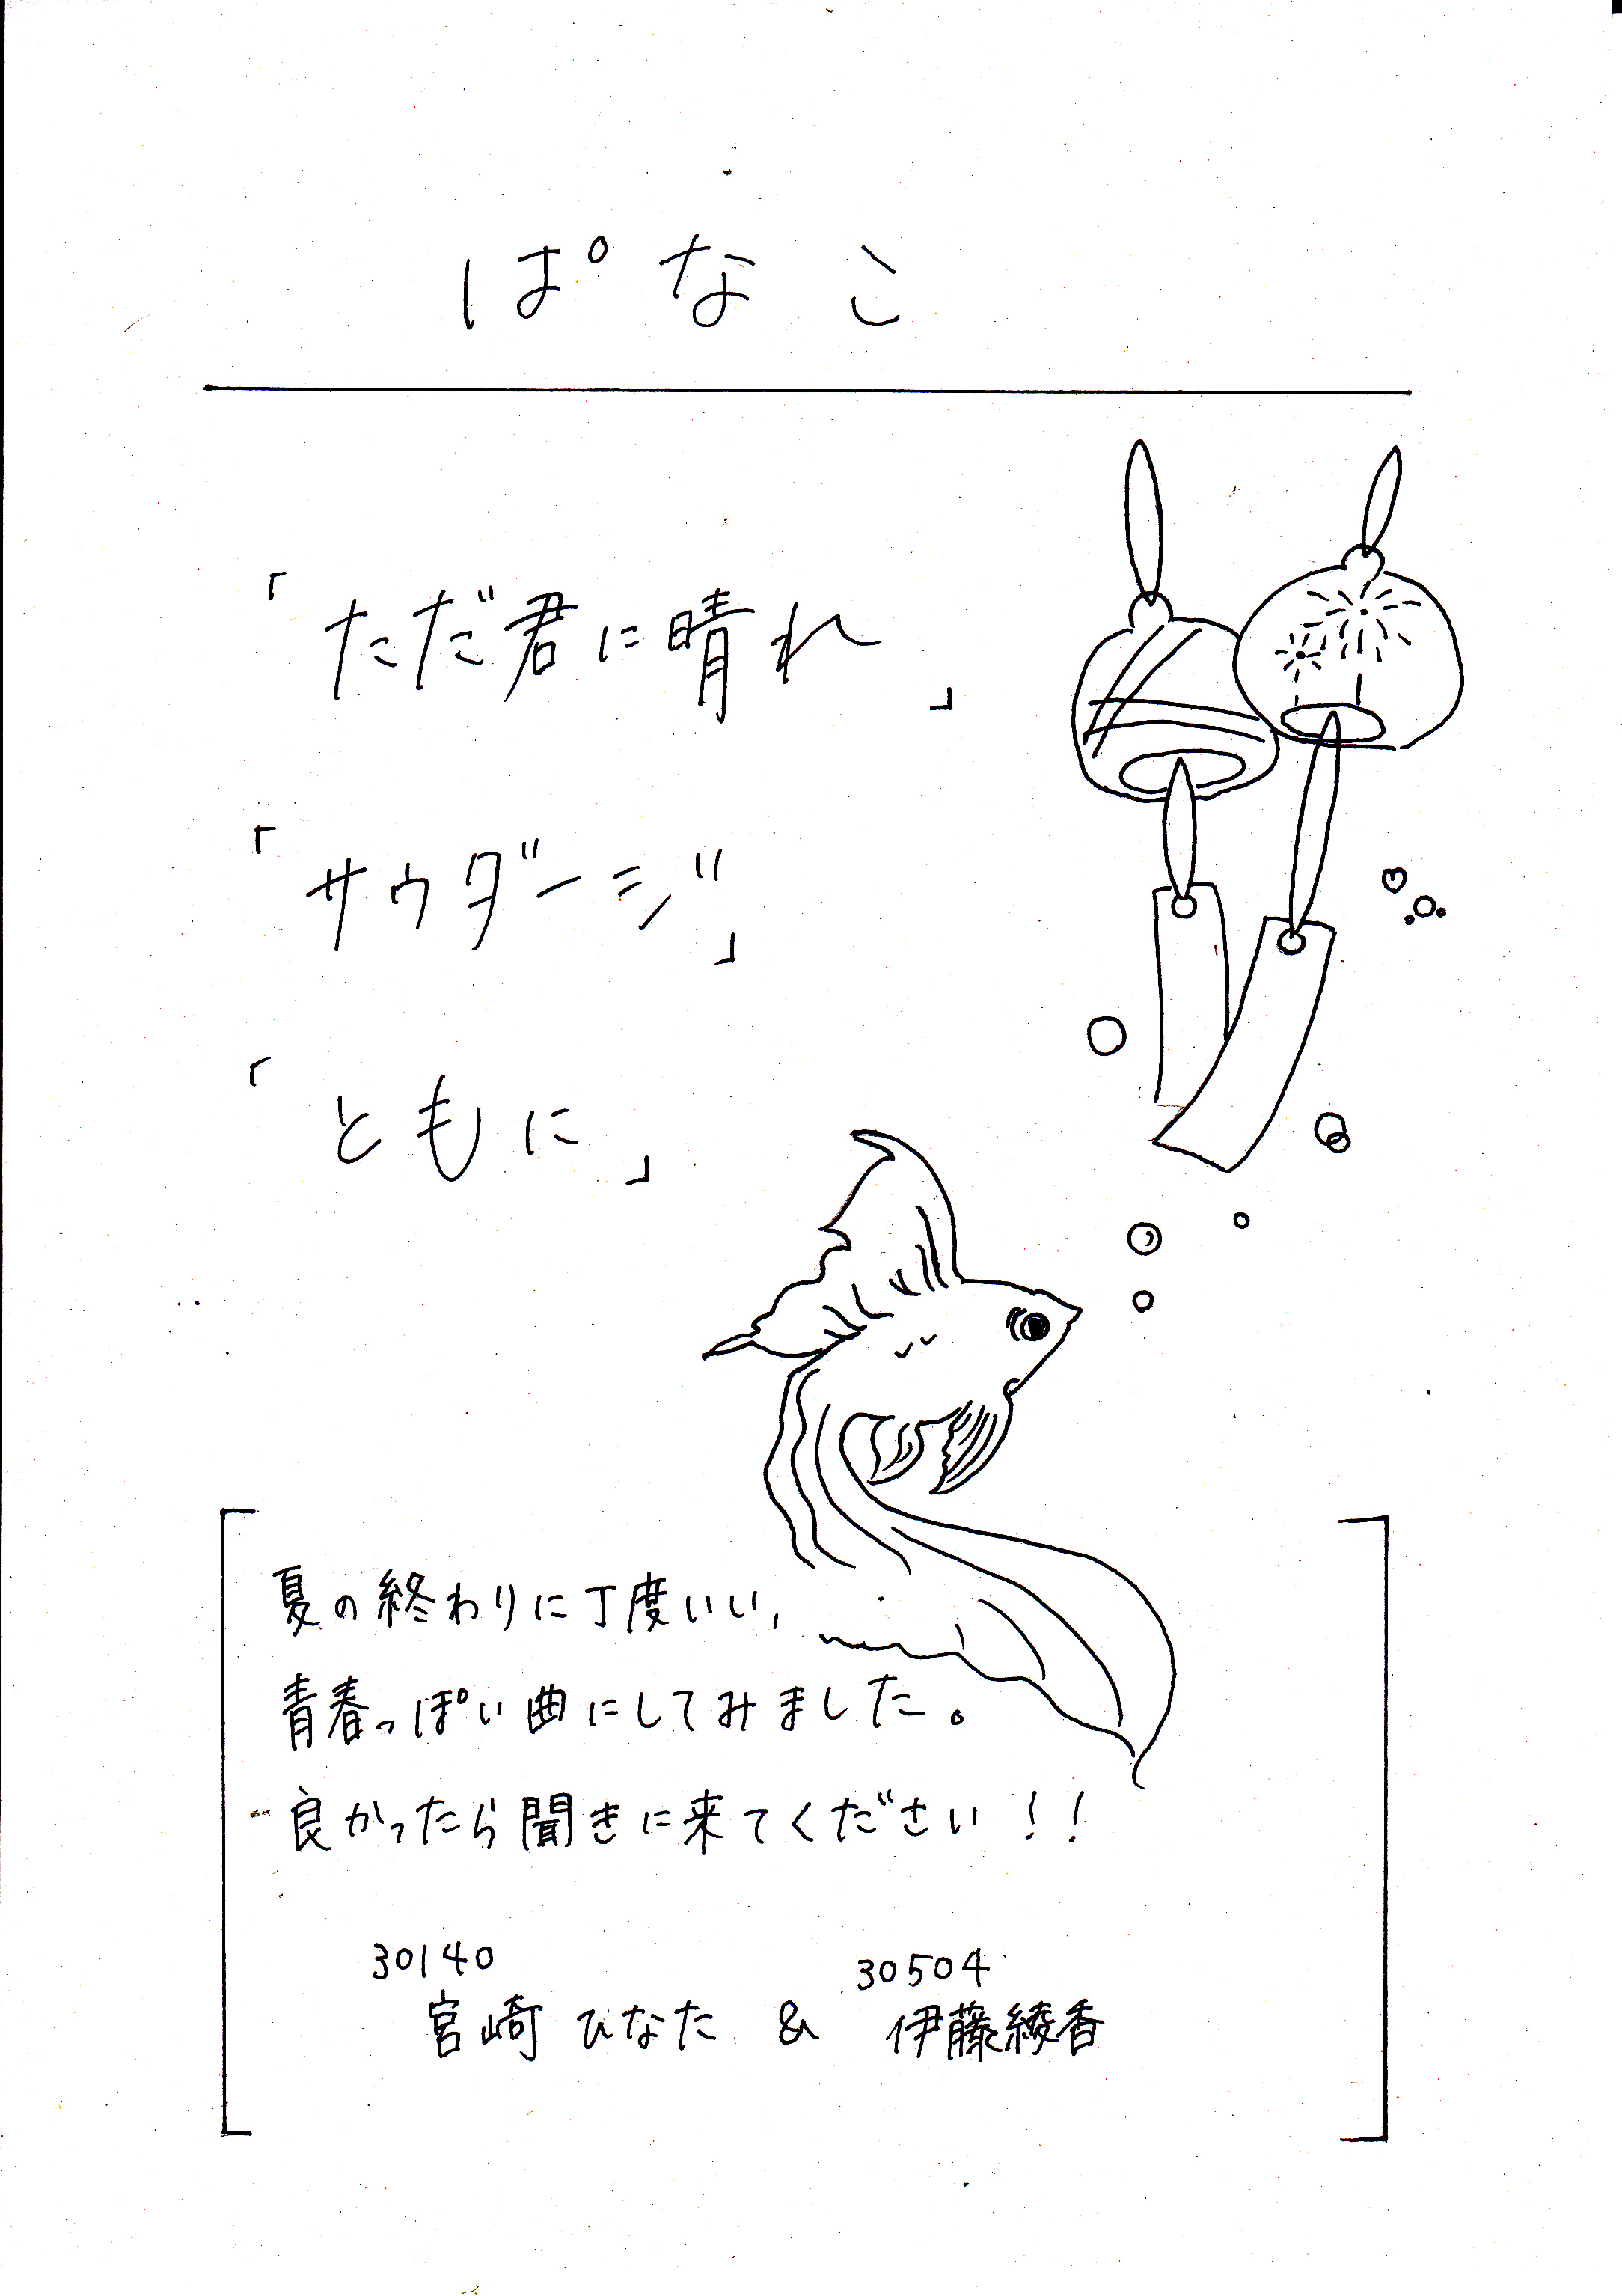 ぱなこ
「ただ君に晴れ」
「サウダージ」
「ともに」
夏の終わりに丁度いい,
青春っぽい曲にしてみました。
良かったら聞きに来てください!!
30140 30504
宮崎ひなた & 伊藤綾香